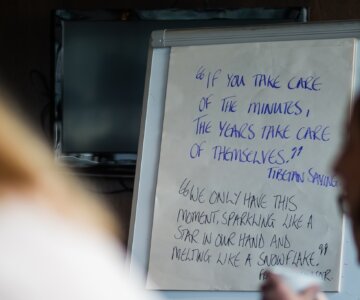 "IF YOU TAKE CARE
OF THE MINUTES,
THE YEARS TAKE CARE
OF THEMSELVES."
TIBETAN SAYING
"WE ONLY HAVE THIS
MOMENT, SPARKLING LIKE A
STAR IN OUR HAND AND
MELTING LIKE A SNOWFLAKE."